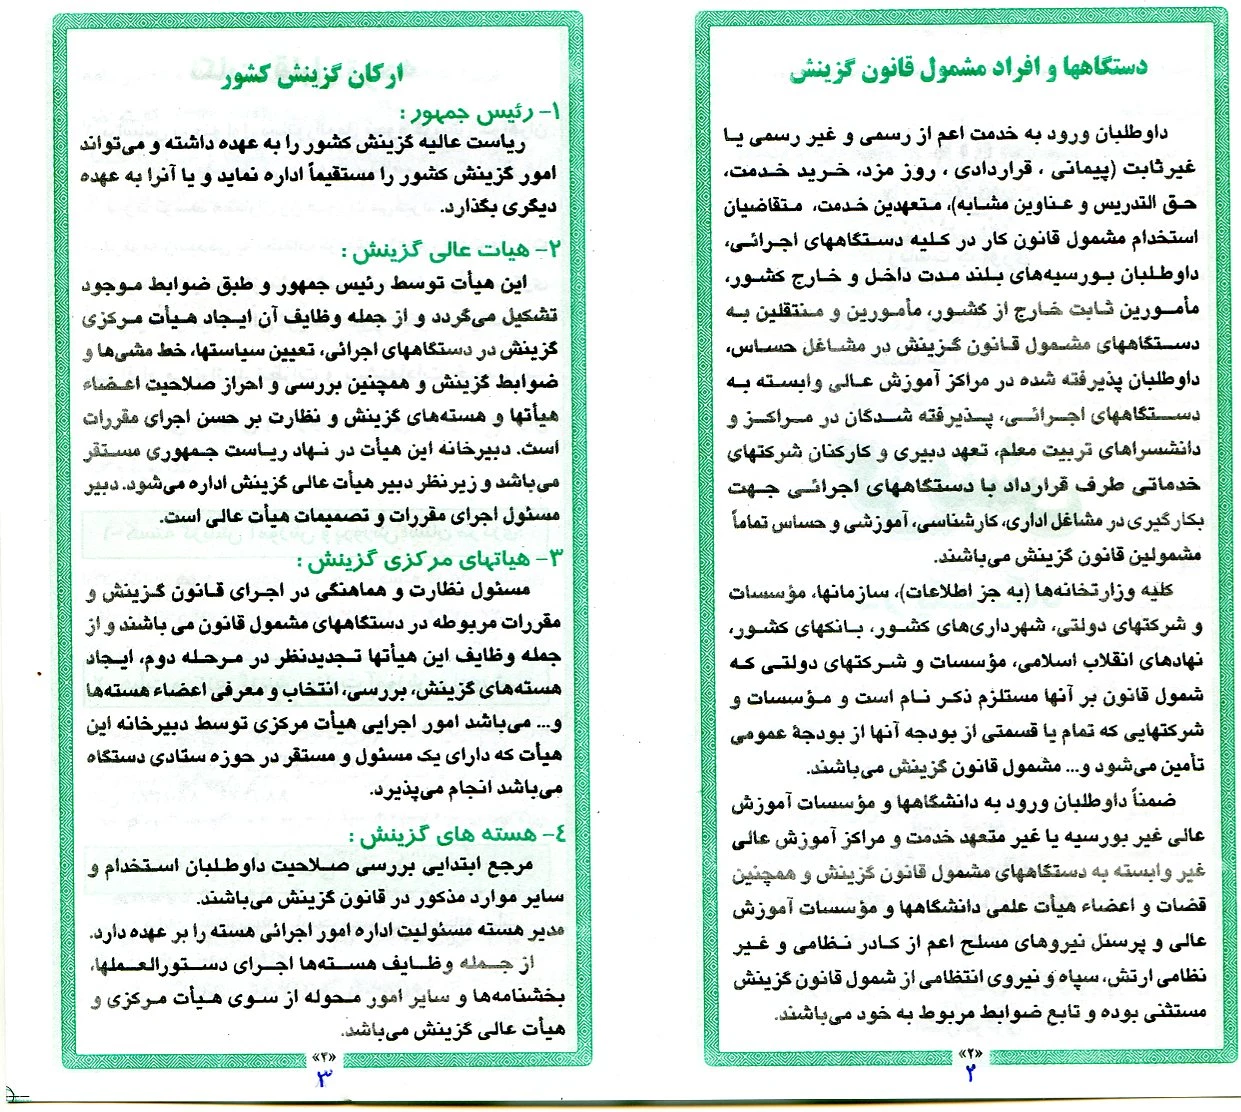 دستگاهها و افراد مشمول قانون گزینش
داوطلبان ورود به خدمت اعم از رسمی و غیر رسمی یا
غیرثابت (پیمانی ، قراردادی ، روز مزد، خرید خدمت،
حق التدریس و عناوین مشابه)، متعهدین خدمت، متقاضیان
استخدام مشمول قانون کار در کلیه دستگاههای اجرائی،
داوطلبان بورسیه‌های بلند مدت داخل و خارج کشور،
مأمورین ثابت خارج از کشور، مأمورین و منتقلین به
دستگاههای مشمول قانون گزینش در مشاغل حساس،
داوطلبان پذیرفته شده در مراکز آموزش عالی وابسته به
دستگاههای اجرائی، پذیرفته شدگان در مراکز و
دانشسراهای تربیت معلم، تعهد دبیری و کارکنان شرکتهای
خدماتی طرف قرارداد با دستگاههای اجرائی جهت
بکارگیری در مشاغل اداری، کارشناسی، آموزشی و حساس تماماً
مشمولین قانون گزینش می‌باشند.
کلیه وزارتخانه‌ها (به جز اطلاعات)، سازمانها، مؤسسات
و شرکتهای دولتی، شهرداری‌های کشور، بانکهای کشور،
نهادهای انقلاب اسلامی، مؤسسات و شرکتهای دولتی که
شمول قانون بر آنها مستلزم ذکر نام است و مؤسسات و
شرکتهایی که تمام یا قسمتی از بودجه آنها از بودجهٔ عمومی
تأمین می‌شود و... مشمول قانون گزینش می‌باشند.
ضمناً داوطلبان ورود به دانشگاهها و مؤسسات آموزش
عالی غیر بورسیه یا غیر متعهد خدمت و مراکز آموزش عالی
غیر وابسته به دستگاههای مشمول قانون گزینش و همچنین
قضات و اعضاء هیأت علمی دانشگاهها و مؤسسات آموزش
عالی و پرسنل نیروهای مسلح اعم از کادر نظامی و غیر
نظامی ارتش، سپاه و نیروی انتظامی از شمول قانون گزینش
مستثنی بوده و تابع ضوابط مربوط به خود می‌باشند.
«۲»
۲
ارکان گزینش کشور
۱- رئیس جمهور :
ریاست عالیه گزینش کشور را به عهده داشته و می‌تواند
امور گزینش کشور را مستقیماً اداره نماید و یا آنرا به عهده
دیگری بگذارد.
۲- هیات عالی گزینش :
این هیأت توسط رئیس جمهور و طبق ضوابط موجود
تشکیل می‌گردد و از جمله وظایف آن ایجاد هیأت مرکزی
گزینش در دستگاههای اجرائی، تعیین سیاستها، خط مشی‌ها و
ضوابط گزینش و همچنین بررسی و احراز صلاحیت اعضاء
هیأتها و هسته‌های گزینش و نظارت بر حسن اجرای مقررات
است. دبیرخانه این هیأت در نهاد ریاست جمهوری مستقر
می‌باشد و زیر نظر دبیر هیأت عالی گزینش اداره می‌شود. دبیر
مسئول اجرای مقررات و تصمیمات هیأت عالی است.
۳- هیاتهای مرکزی گزینش :
مسئول نظارت و هماهنگی در اجرای قانون گزینش و
مقررات مربوطه در دستگاههای مشمول قانون می باشند و از
جمله وظایف این هیأتها تجدیدنظر در مرحله دوم، ایجاد
هسته‌های گزینش، بررسی، انتخاب و معرفی اعضاء هسته‌ها
و... می‌باشد امور اجرایی هیأت مرکزی توسط دبیرخانه این
هیأت که دارای یک مسئول و مستقر در حوزه ستادی دستگاه
می‌باشد انجام می‌پذیرد.
٤- هسته های گزینش :
مرجع ابتدایی بررسی صلاحیت داوطلبان استخدام و
سایر موارد مذکور در قانون گزینش می‌باشند.
مدیر هسته مسئولیت اداره امور اجرائی هسته را بر عهده دارد.
از جمله وظایف هسته‌ها اجرای دستورالعملها،
بخشنامه‌ها و سایر امور محوله از سوی هیأت مرکزی و
هیأت عالی گزینش می‌باشد.
«۳»
۳